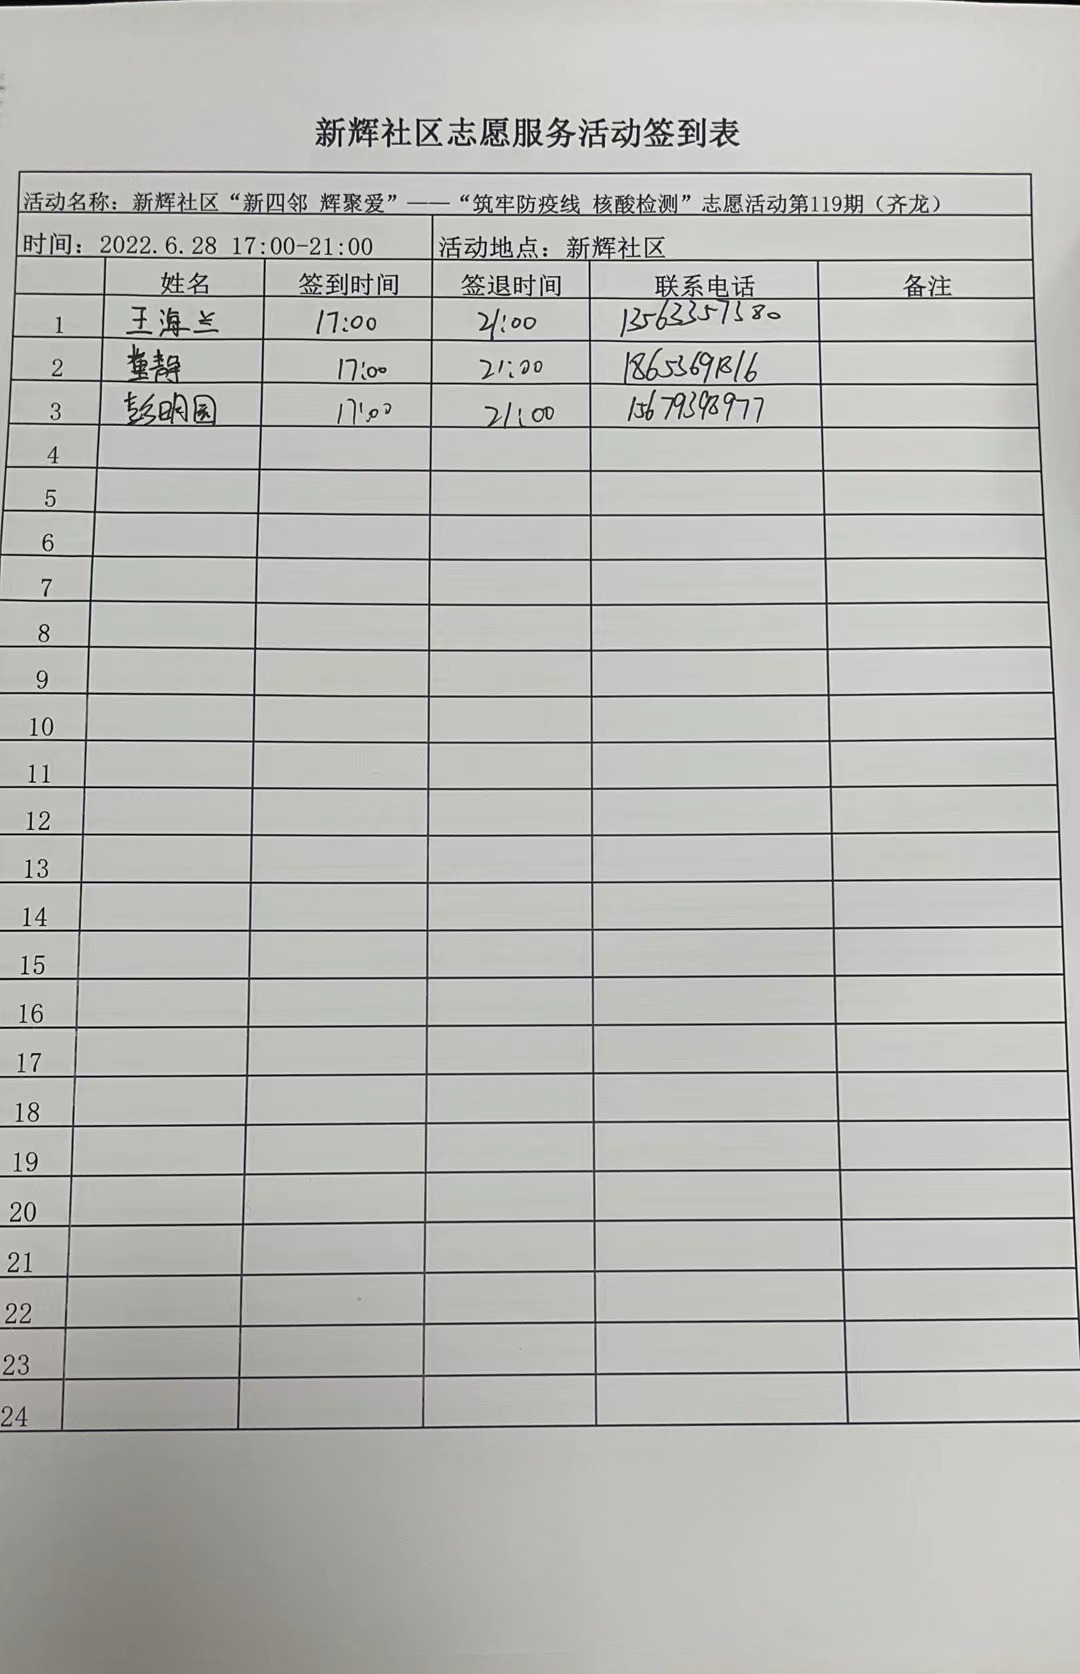 新辉社区志愿服务活动签到表
活动名称：新辉社区“新四邻 辉聚爱”——“筑牢防疫线 核酸检测”志愿活动第119期（齐龙）
时间：2022.6.28 17:00-21:00 活动地点：新辉社区
姓名 签到时间 签退时间 联系电话 备注
1 王海兰 17:00 21:00 13563357580
2 董静 17:00 21:00
3 彭明园 17:00 21:00 15679398977
4
5
6
7
8
9
10
11
12
13
14
15
16
17
18
19
20
21
22
23
24